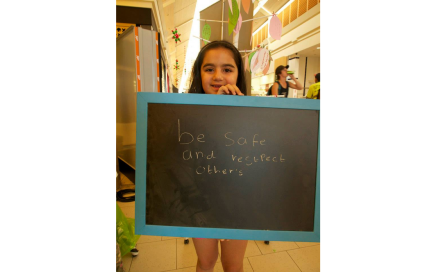 be safe
and respect
other's